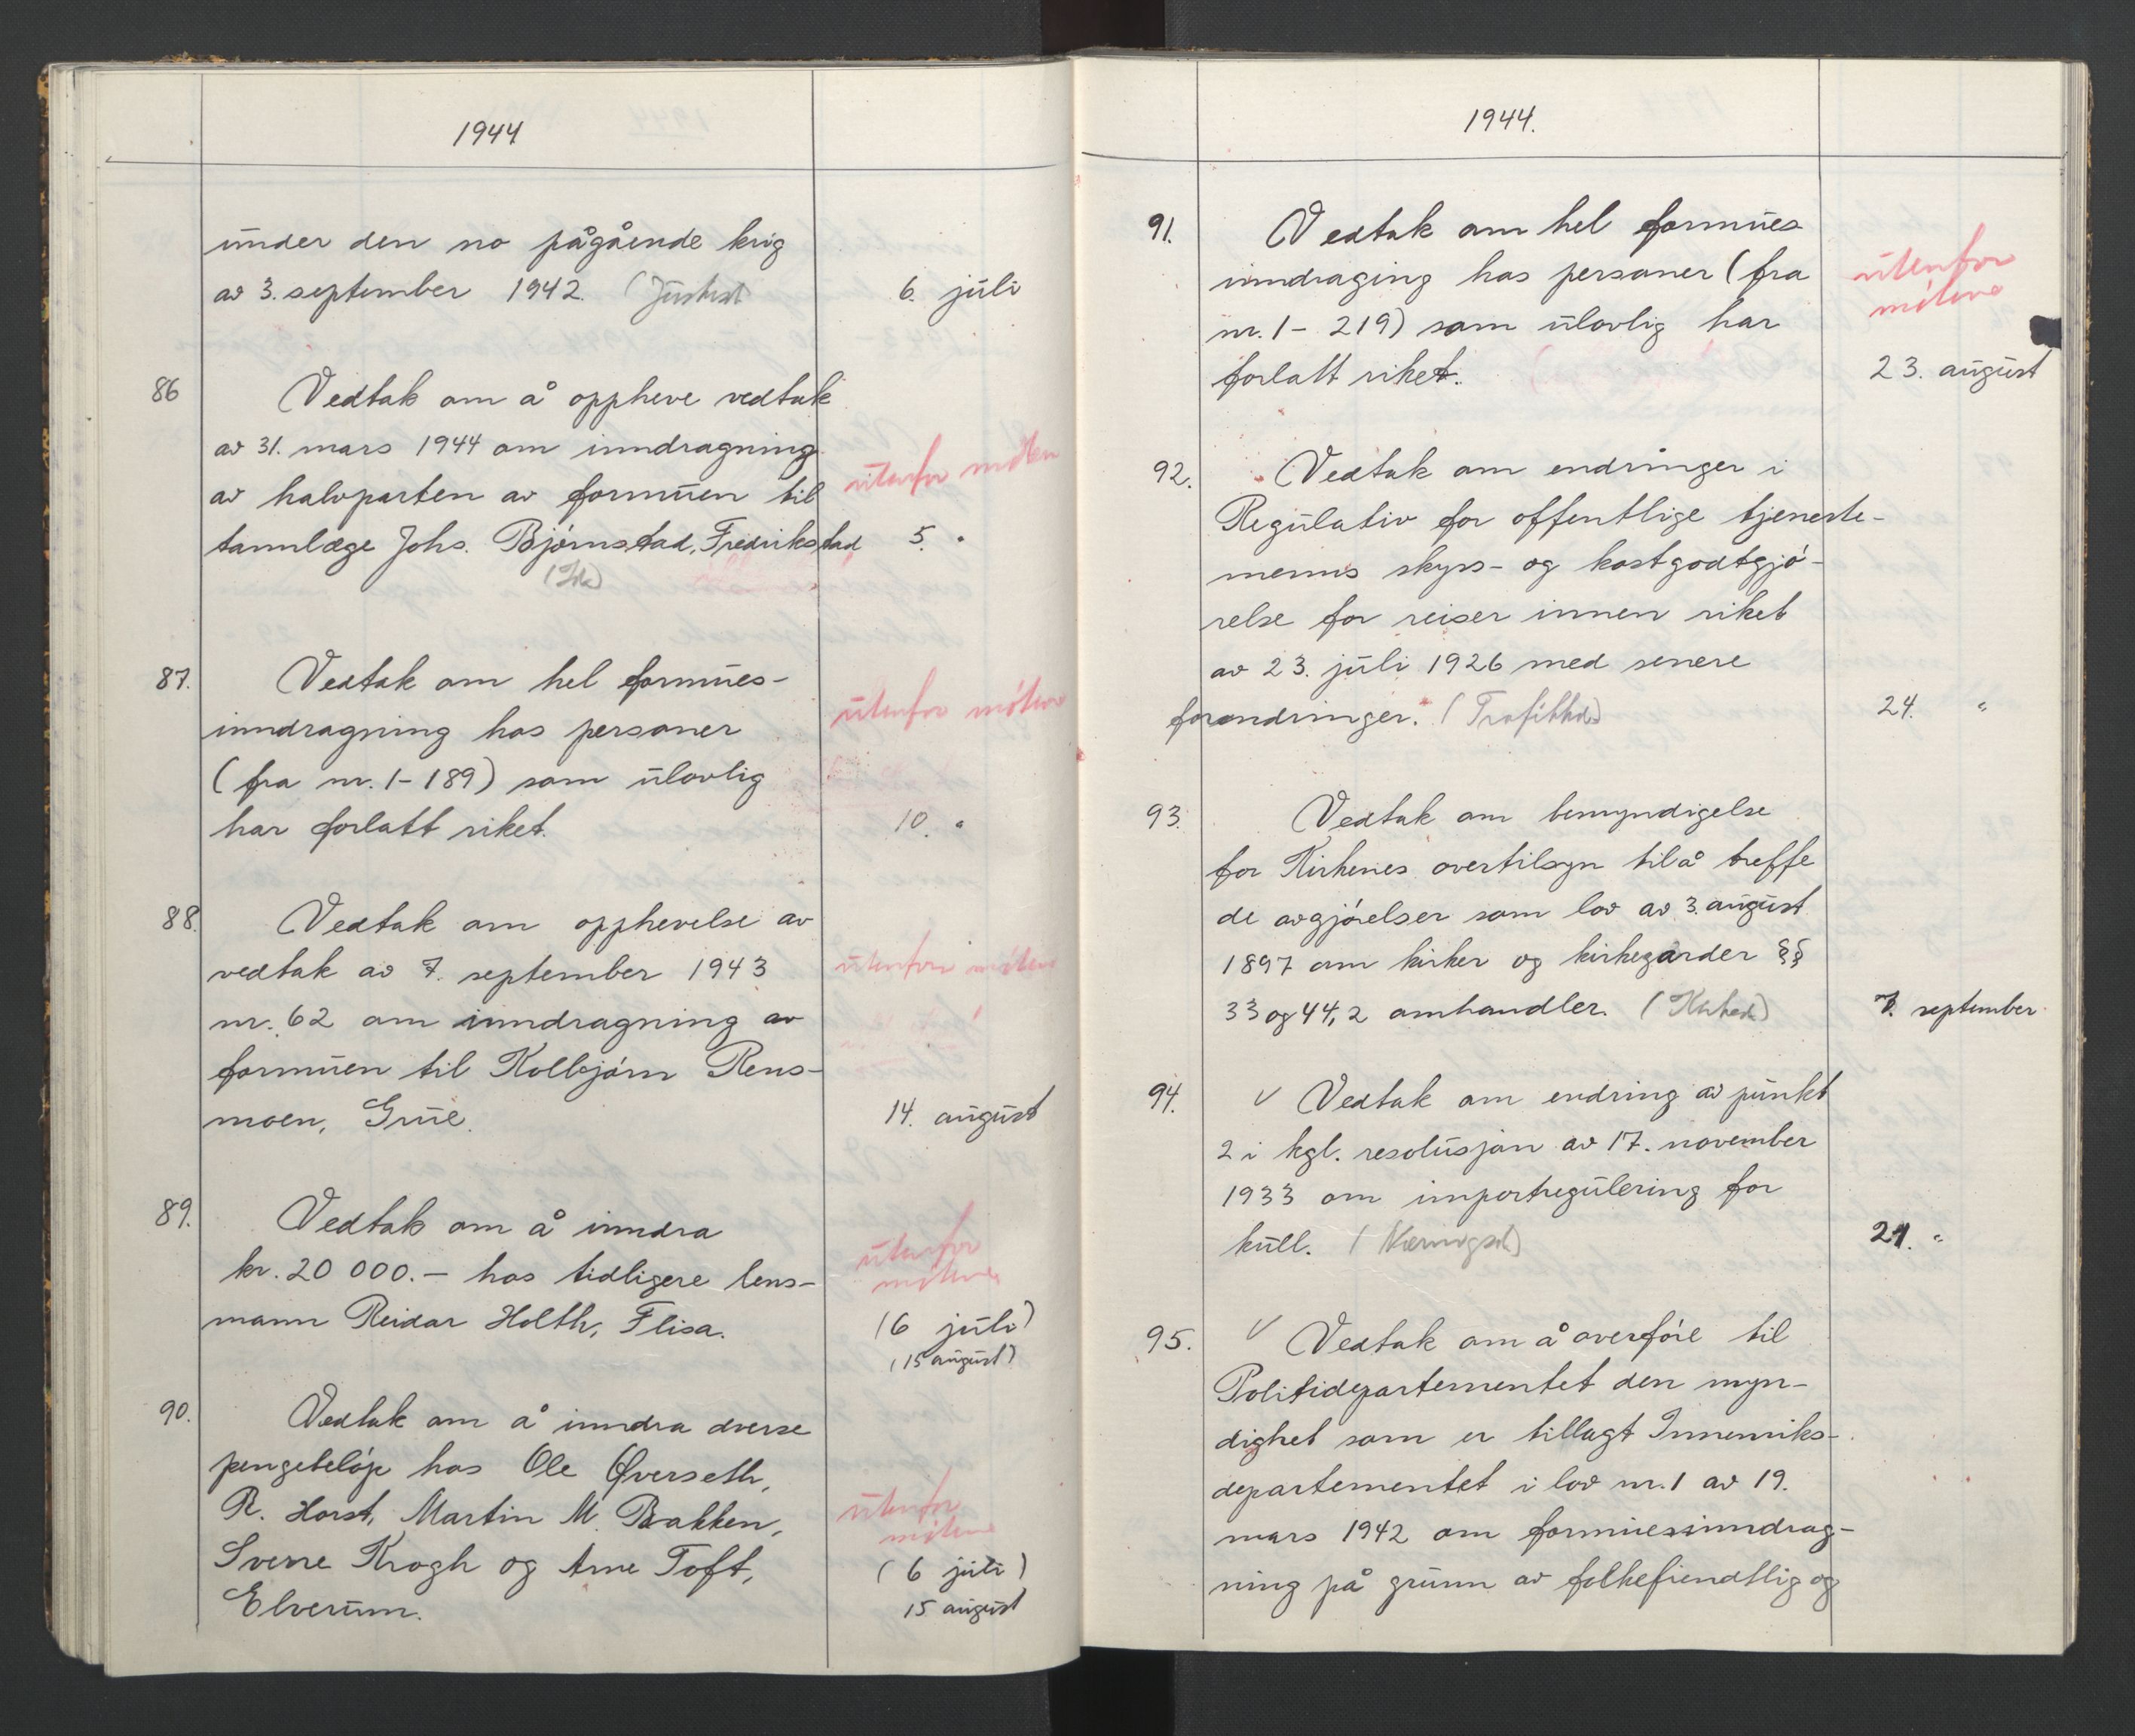 1944
under den no pågående krig
av 3. september 1942. (Justisd 6. juli
86 Vedtak om å oppheve vedtak
av 31. mars 1944 om inndragning
av halvparten av formuen til utenfor møtene
tannlæge Johs. Bjørnstad, Fredrikstad 5. "
87. Vedtak om hel formues-
inndragning hos personer utenfor møtene
(fra nr. 1-189) som ulovlig
har forlatt riket. 10. "
88. Vedtak om opphevelse av
vedtak av 7. september 1943 utenfor møtene
nr. 62 om inndragning av
formuen til Kolbjørn Rens-
moen, Grue. 14. august
89. Vedtak om å inndra utenfor
kr. 20 000.- hos tidligere lens- møtene
mann Reidar Holth, Flisa. (6 juli)
(15 august)
90. Vedtak om å inndra dverse
pengebeløp hos Ole Øverseth,
R. Horst, Martin M. Bakken, utenfor møtene
Sverre Krogh og Arne Toft, (6 juli)
Elverum. 15 august
1944.
91. Vedtak om hel formues
inndraging hos personer (fra utenfor
nr. 1- 219) som ulovlig har møtene
forlatt riket. 23. august
92. Vedtak om endringer i
Regulativ for offentlige tjeneste-
menns skyss- og kostgodtgjø-
relse for reiser innen riket
av 23. juli 1926 med senere
forandringer. (Trafikkd) 24. "
93. Vedtak om bemyndigelse
for Kirkenes overtilsyn til å treffe
de avgjørelser som lov av 3. august
1897 om kirker og kirkegarder §§
33 og 44, 2 omhandler. (Kirked) 7. september
94. V Vedtak om endring av punkt
2 i kgl. resolusjon av 17. november
1933 om importregulering for
kull. (Næringsd) 21. "
95. V Vedtak om å overføre til
Politidepartementet den myn-
dighet som er tillagt Innenriks-
departementet i lov nr. 1 av 19.
mars 1942 om formuesinndrag-
ning på grunn av folkefiendtlig og